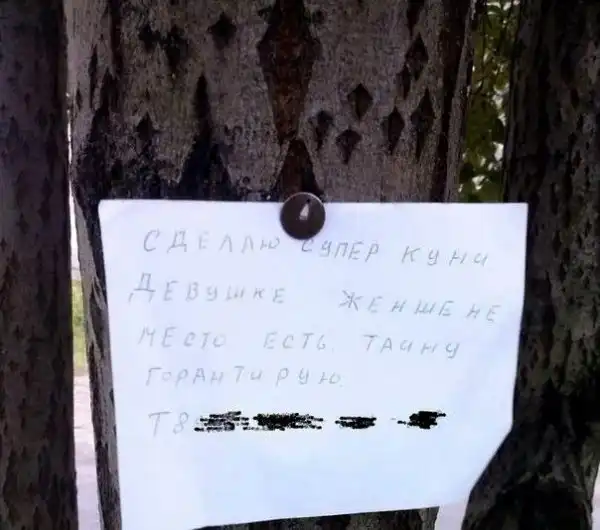 СДЕЛАЮ СУПЕР КУНИ
ДЕВУШКЕ ЖЕНШЕНЕ
МЕСТО ЕСТЬ. ТАИНУ
ГОРАНТИРУЮ.
Т 8